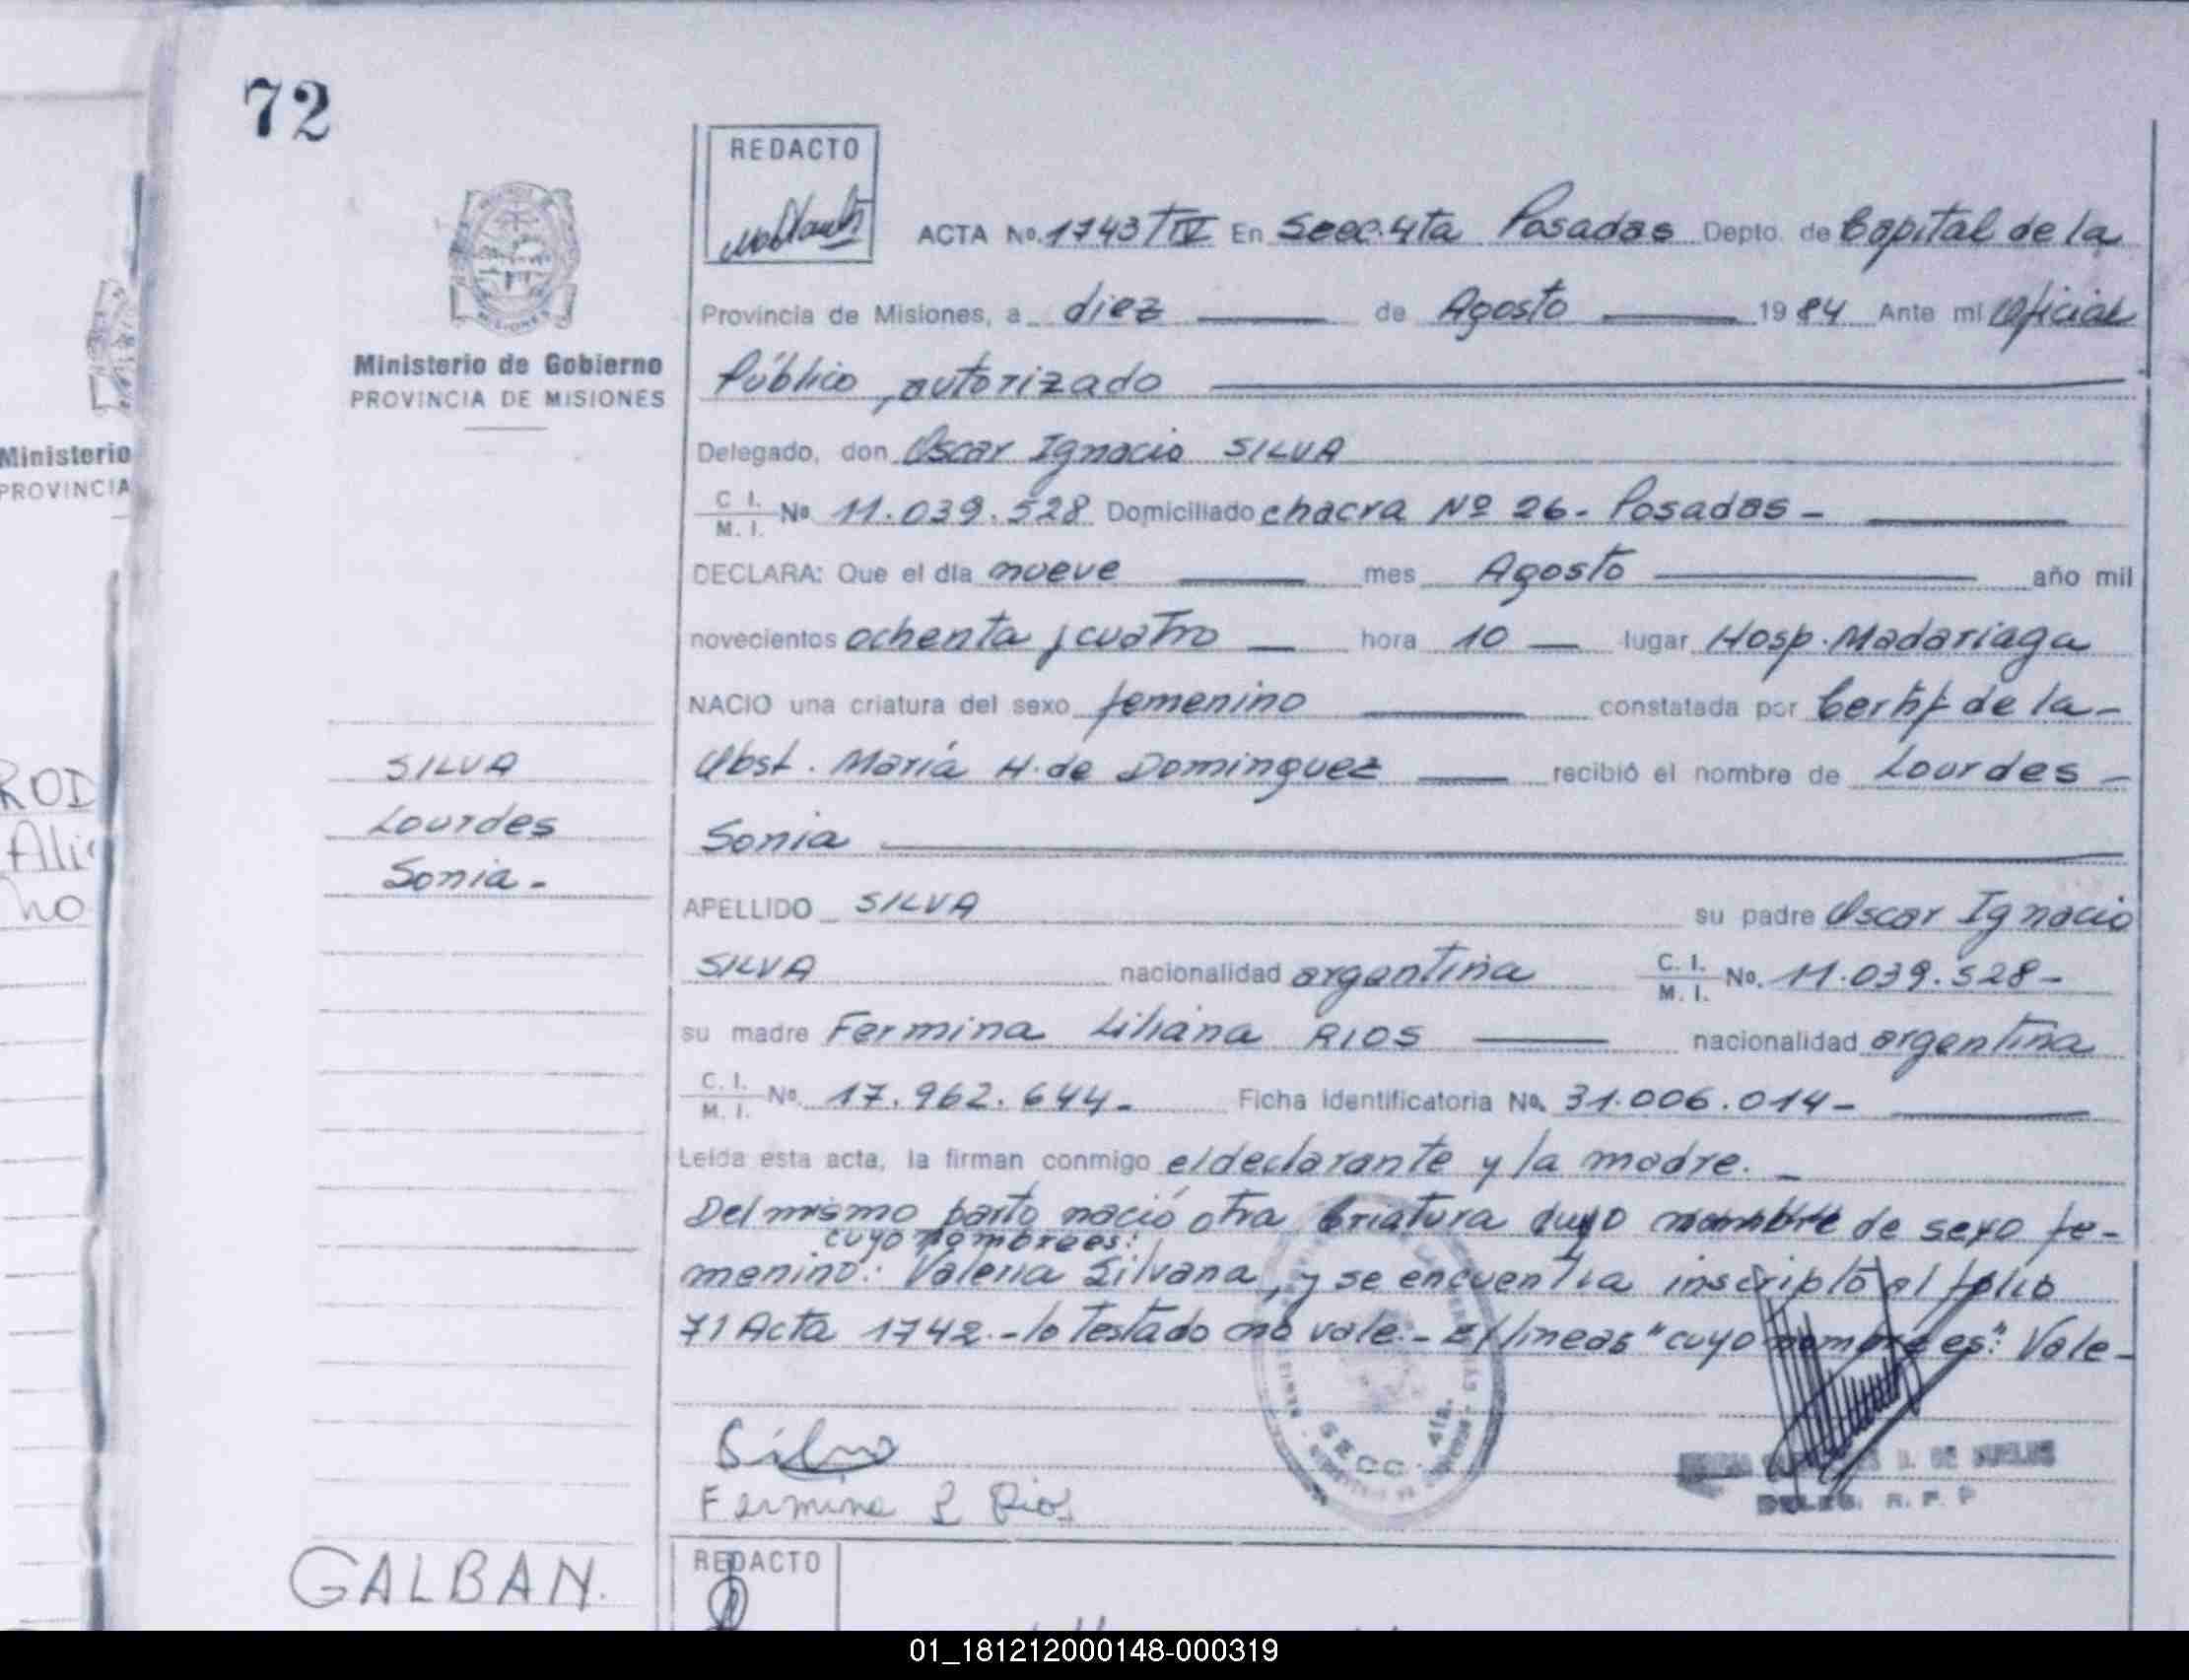 72
REDACTO
ACTA No. 1743/IV En Secc. 4ta Posadas Depto. de Capital de la
Provincia de Misiones, a diez de Agosto 1984 Ante mi Oficial
Ministerio de Gobierno
PROVINCIA DE MISIONES
Público, autorizado
Ministerio
PROVINCIA
Delegado, don Oscar Ignacio SILVA
C. I. M. I. No 11.039.528 Domiciliado chacra Nº 26 - Posadas -
DECLARA: Que el día nueve mes Agosto año mil
novecientos ochenta y cuatro hora 10 lugar Hosp. Madariaga
NACIO una criatura del sexo femenino constatada por Certif de la -
SILVA
Obst. María H. de Dominguez recibió el nombre de Lourdes -
ROD
Lourdes
Sonia
Ali
Sonia -
no
APELLIDO SILVA su padre Oscar Ignacio
SILVA nacionalidad argentina C. I. M. I. No. 11.039.528 -
su madre Fermina Liliana RIOS nacionalidad argentina
C. I. M. I. No. 17.962.644 - Ficha identificatoria No. 31.006.014 -
Leída esta acta, la firman conmigo el declarante y la madre. -
Del mismo parto nació otra Criatura cuyo nombre de sexo fe-
cuyo nombre es:
menino: Valeria Silvana, y se encuentra inscripto al folio
71 Acta 1742.- lo Testado no vale.- E/lineas "cuyo nombre es": Vale -
Silva
SECC. 4ta.
Fermina L Rios
DELEG. R. P. P
GALBAN.
REDACTO
01_181212000148-000319